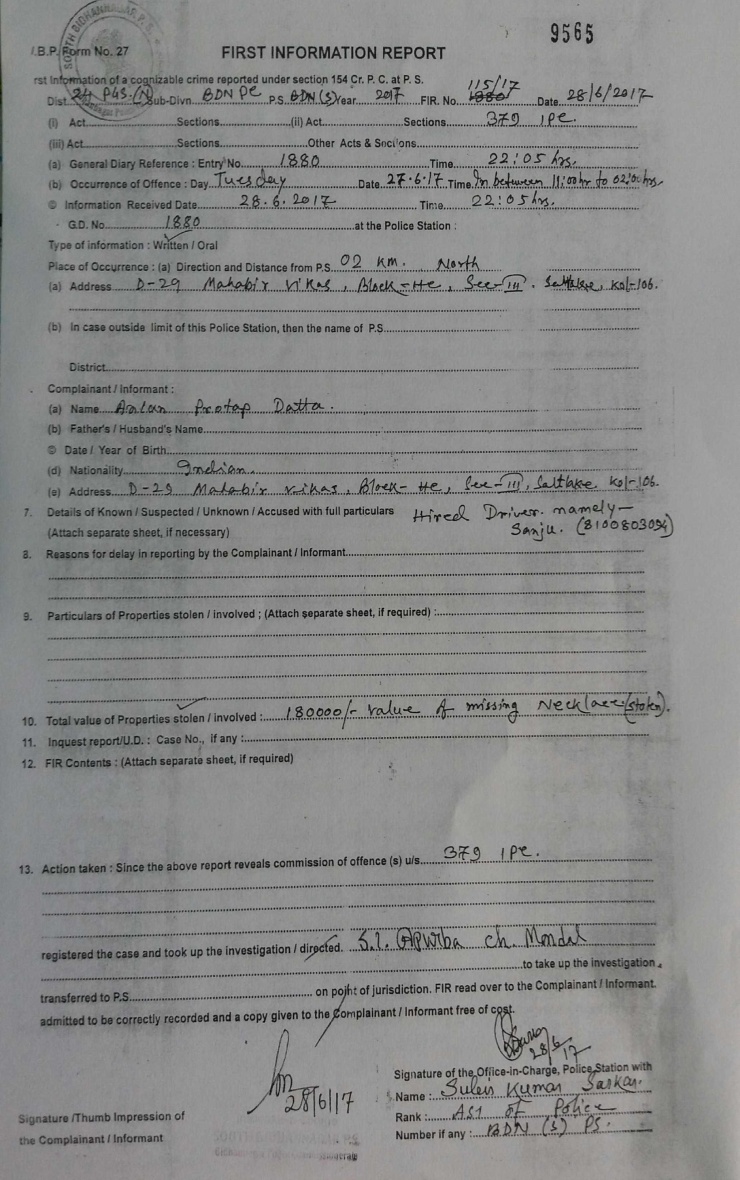 9565
I.B.P. Form No. 27
FIRST INFORMATION REPORT
rst Information of a cognizable crime reported under section 154 Cr. P. C. at P. S.
Dist. 24 PGS.(N) Sub-Divn. BDN PC P.S. BDN (S) Year 2017 FIR. No. 115/17 1880 Date 28/6/2017
(i) Act Sections (ii) Act Sections 379 IPC.
(iii) Act Sections Other Acts & Sncions
(a) General Diary Reference : Entry No. 1880 Time 22:05 hrs.
(b) Occurrence of Offence : Day Tuesday Date 27.6.17 Time In between 11:00hr to 02:00hrs.
© Information Received Date 28.6.2017 Time 22:05 hrs.
G.D. No. 1880 at the Police Station :
Type of information : Written / Oral
Place of Occurrence : (a) Direction and Distance from P.S. 02 KM. North
(a) Address D-29 Mahabir Vikas, Block-He, Sec-III. Saltlake, Kol-106.
(b) In case outside limit of this Police Station, then the name of P.S.
District
Complainant / Informant :
(a) Name Pratap Datta.
(b) Father's / Husband's Name
© Date / Year of Birth
(d) Nationality Indian.
(e) Address D-29 Mahabir Vikas, Block-He, Sec-III, Saltlake. Kol-106.
7. Details of Known / Suspected / Unknown / Accused with full particulars Hired Driver. namely-
(Attach separate sheet, if necessary) Sanju. (8100803094)
8. Reasons for delay in reporting by the Complainant / Informant
9. Particulars of Properties stolen / involved ; (Attach separate sheet, if required) :
10. Total value of Properties stolen / involved : 180000/- value of missing Necklace (stolen).
11. Inquest report/U.D. : Case No., if any :
12. FIR Contents : (Attach separate sheet, if required)
13. Action taken : Since the above report reveals commission of offence (s) u/s. 379 IPC.
registered the case and took up the investigation / directed. S.I. Apurba ch. Mondal
to take up the investigation
transferred to P.S. on point of jurisdiction. FIR read over to the Complainant / Informant.
admitted to be correctly recorded and a copy given to the Complainant / Informant free of cost.
28/6/17
28/6/17
Signature of the Office-in-Charge, Police Station with
Name : Kumar Sarkar.
Rank : ASI of Police
Number if any : BDN (S) PS.
Signature /Thumb Impression of
the Complainant / Informant